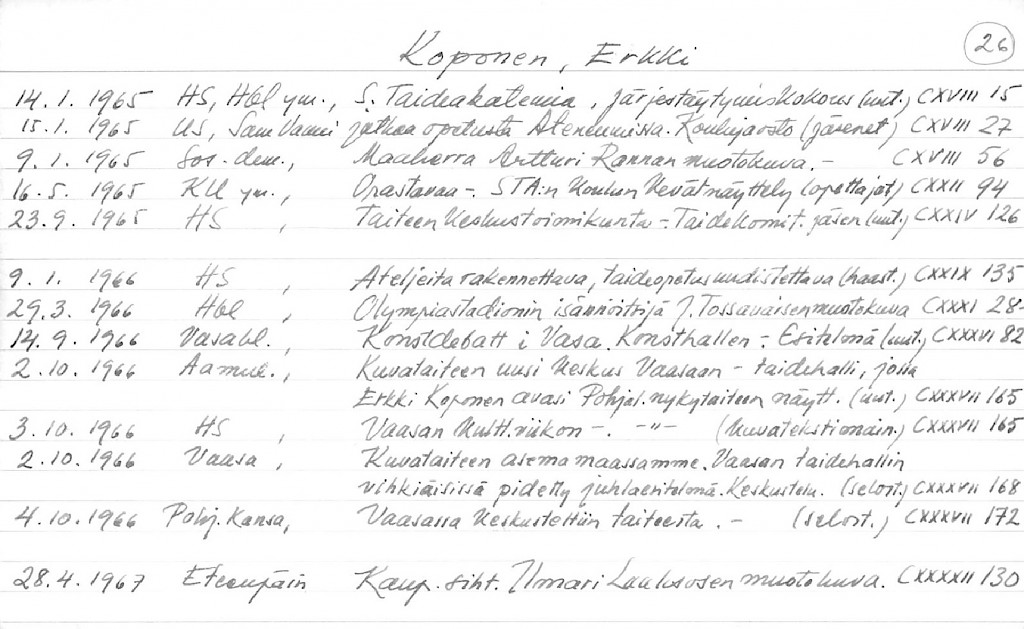 26
Koponen, Erkki
14.1.1965 HS, Hbl ym., S. Taideakatemia, järjestäytymiskokous (uut.) CXVIII 15
15.1.1965 US, Sam Vanni jatkaa opetusta Ateneumissa. Koulujaosto (jäsenet) CXVIII 27
9.1.1965 Sos.-dem., Maaherra Artturi Rannan muotokuva. - CXVIII 56
16.5.1965 KU ym., Orastavaa - STA:n koulun kevätnäyttely (opettajat) CXXII 94
23.9.1965 HS, Taiteen keskustoimikunta - Taidekomit. jäsen (uut.) CXXIV 126
9.1.1966 HS, Ateljeita rakennettava, taideopetus uudistettava (haast.) CXXIX 135
29.3.1966 Hbl, Olympiastadionin isännöitsijä J. Tossavaisen muotokuva CXXXI 28-
14.9.1966 Vasabl., Konstdebatt i Vasa Konsthallen - Esitelmä (uut.) CXXXVI 82
2.10.1966 Aamul., Kuvataiteen uusi keskus Vaasaan - taidehalli, jossa
Erkki Koponen avasi Pohjal. nykytaiteen näytt. (uut.) CXXXVII 165
3.10.1966 HS, Vaasan kultt.viikon -. -"- (kuvatekstimain.) CXXXVII 165
2.10.1966 Vaasa, Kuvataiteen asema maassamme. Vaasan taidehallin
vihkiäisissä pidetty juhlaesitelmä. Keskustelu. (selost.) CXXXVII 168
4.10.1966 Pohj. Kansa, Vaasassa keskusteltiin taiteesta. - (selost.) CXXXVII 172
28.4.1967 Eteenpäin Kaup. siht. Ilmari Laukososen muotokuva. CXXXXII 130